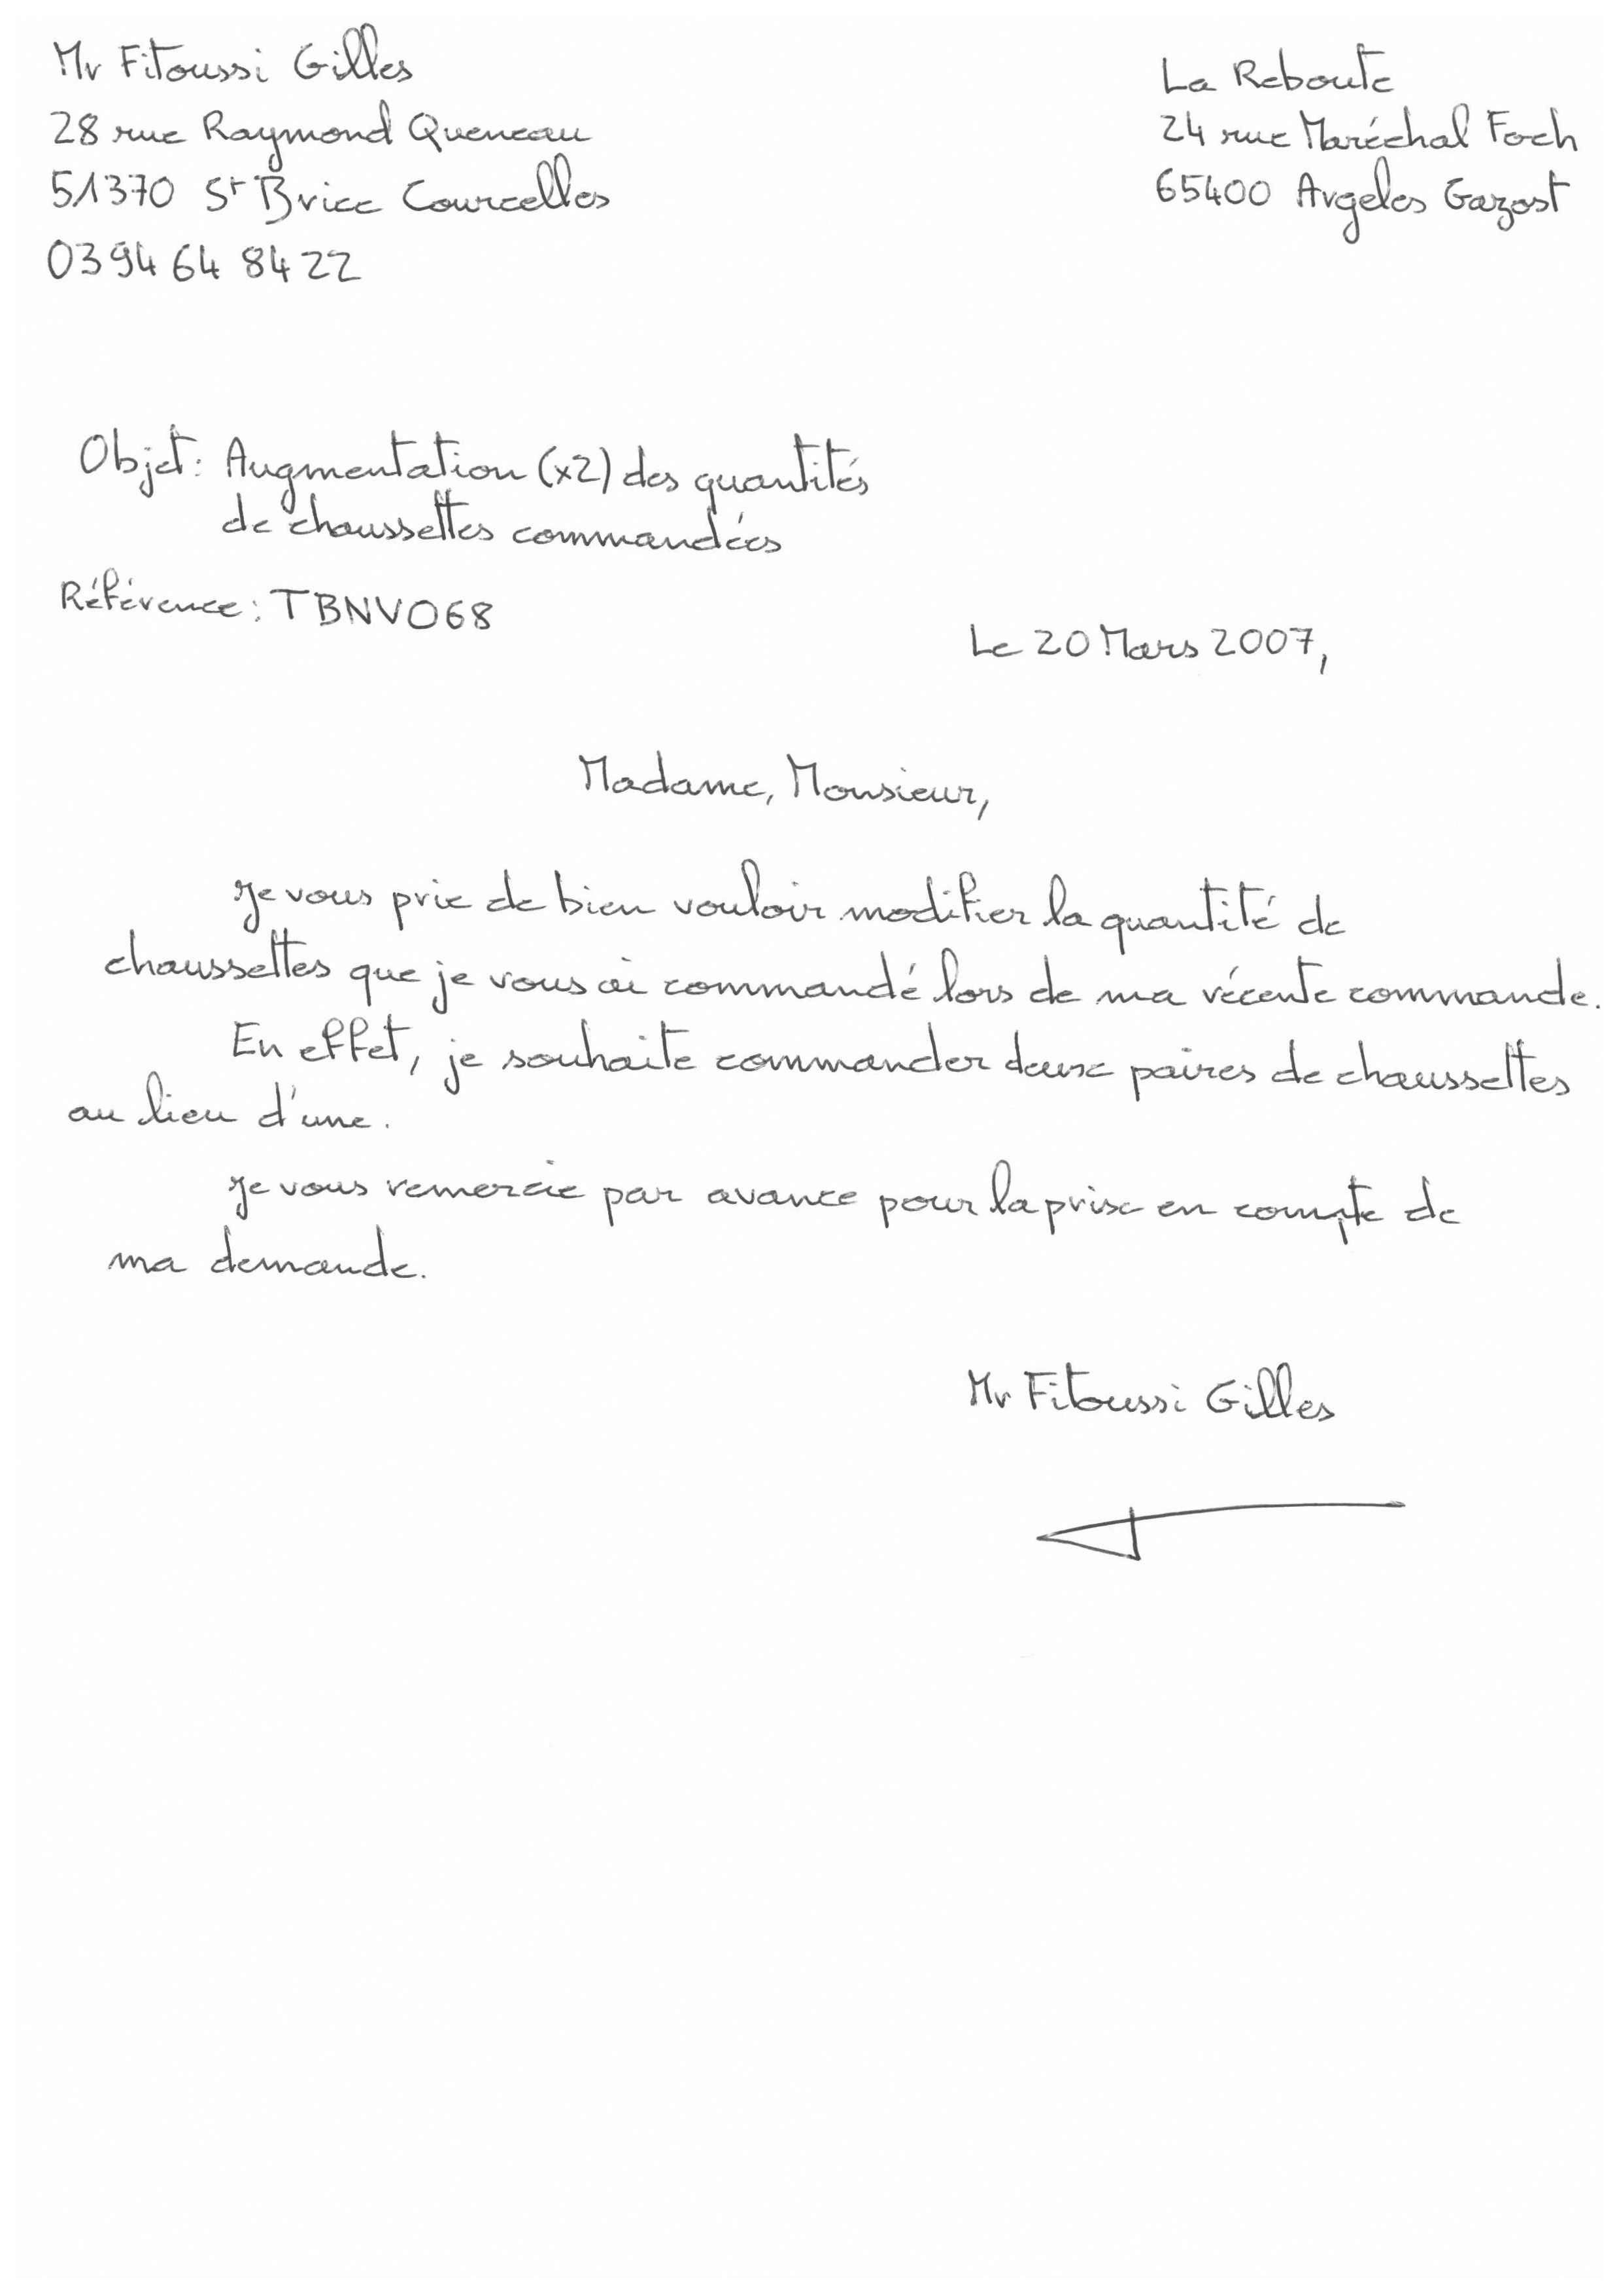 Mr Fitoussi Gilles
28 rue Raymond Queneau
51370 St Brice Courcelles
03 94 64 84 22
La Reboute
24 rue Maréchal Foch
65400 Argeles Gazost
Objet: Augmentation (x2) des quantités
de chaussettes commandées
Référence: TBNVO68
Le 20 Mars 2007,
Madame, Monsieur,
Je vous prie de bien vouloir modifier la quantité de
chaussettes que je vous ai commandé lors de ma récente commande.
En effet, je souhaite commander deux paires de chaussettes
au lieu d'une.
Je vous remercie par avance pour la prise en compte de
ma demande.
Mr Fitoussi Gilles